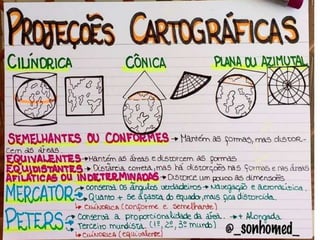 PROJEÇÕES CARTOGRÁFICAS
CILÍNDRICA CÔNICA PLANA OU AZIMUTAL
SEMELHANTES OU CONFORMES → Mantém as formas, mas distor-
cem as áreas
EQUIVALENTES → Mantém as áreas e distorcem as formas
EQUIDISTANTES → Distância correta, mas há distorções nas formas e nas áreas
AFILÁTICAS OU INDETERMINADAS → Distorce um pouco as dimensões
MERCATOR → conserva os ângulos verdadeiros → Navegação e aeronáutica.
→ Quanto + se afasta do equador, mais fica distorcida.
↳ CILÍNDRICA (conforme e semelhante)
PETERS → Conserva a proporcionalidade da área. → + Alongada
→ Terceiro mundista. (1º, 2º, 3º mundo)
↳ CILÍNDRICA (equivalente)
@_sonhomed_